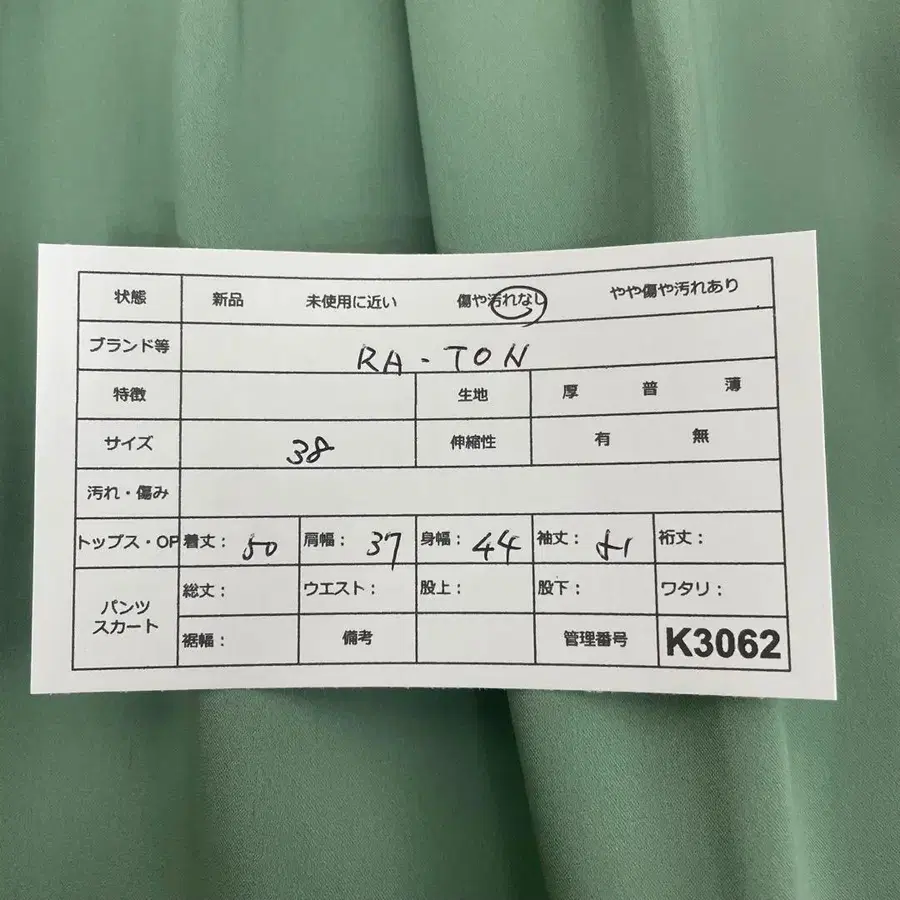 状態 新品 未使用に近い 傷や汚れなし やや傷や汚れあり
ブランド等 RA-TON
特徴 生地 厚 普 薄
サイズ 38 伸縮性 有 無
汚れ・傷み
トップス・OP 着丈： 50 肩幅： 37 身幅： 44 袖丈： 51 裄丈：
パンツ スカート 総丈： ウエスト： 股上： 股下： ワタリ：
裾幅： 備考 管理番号 K3062